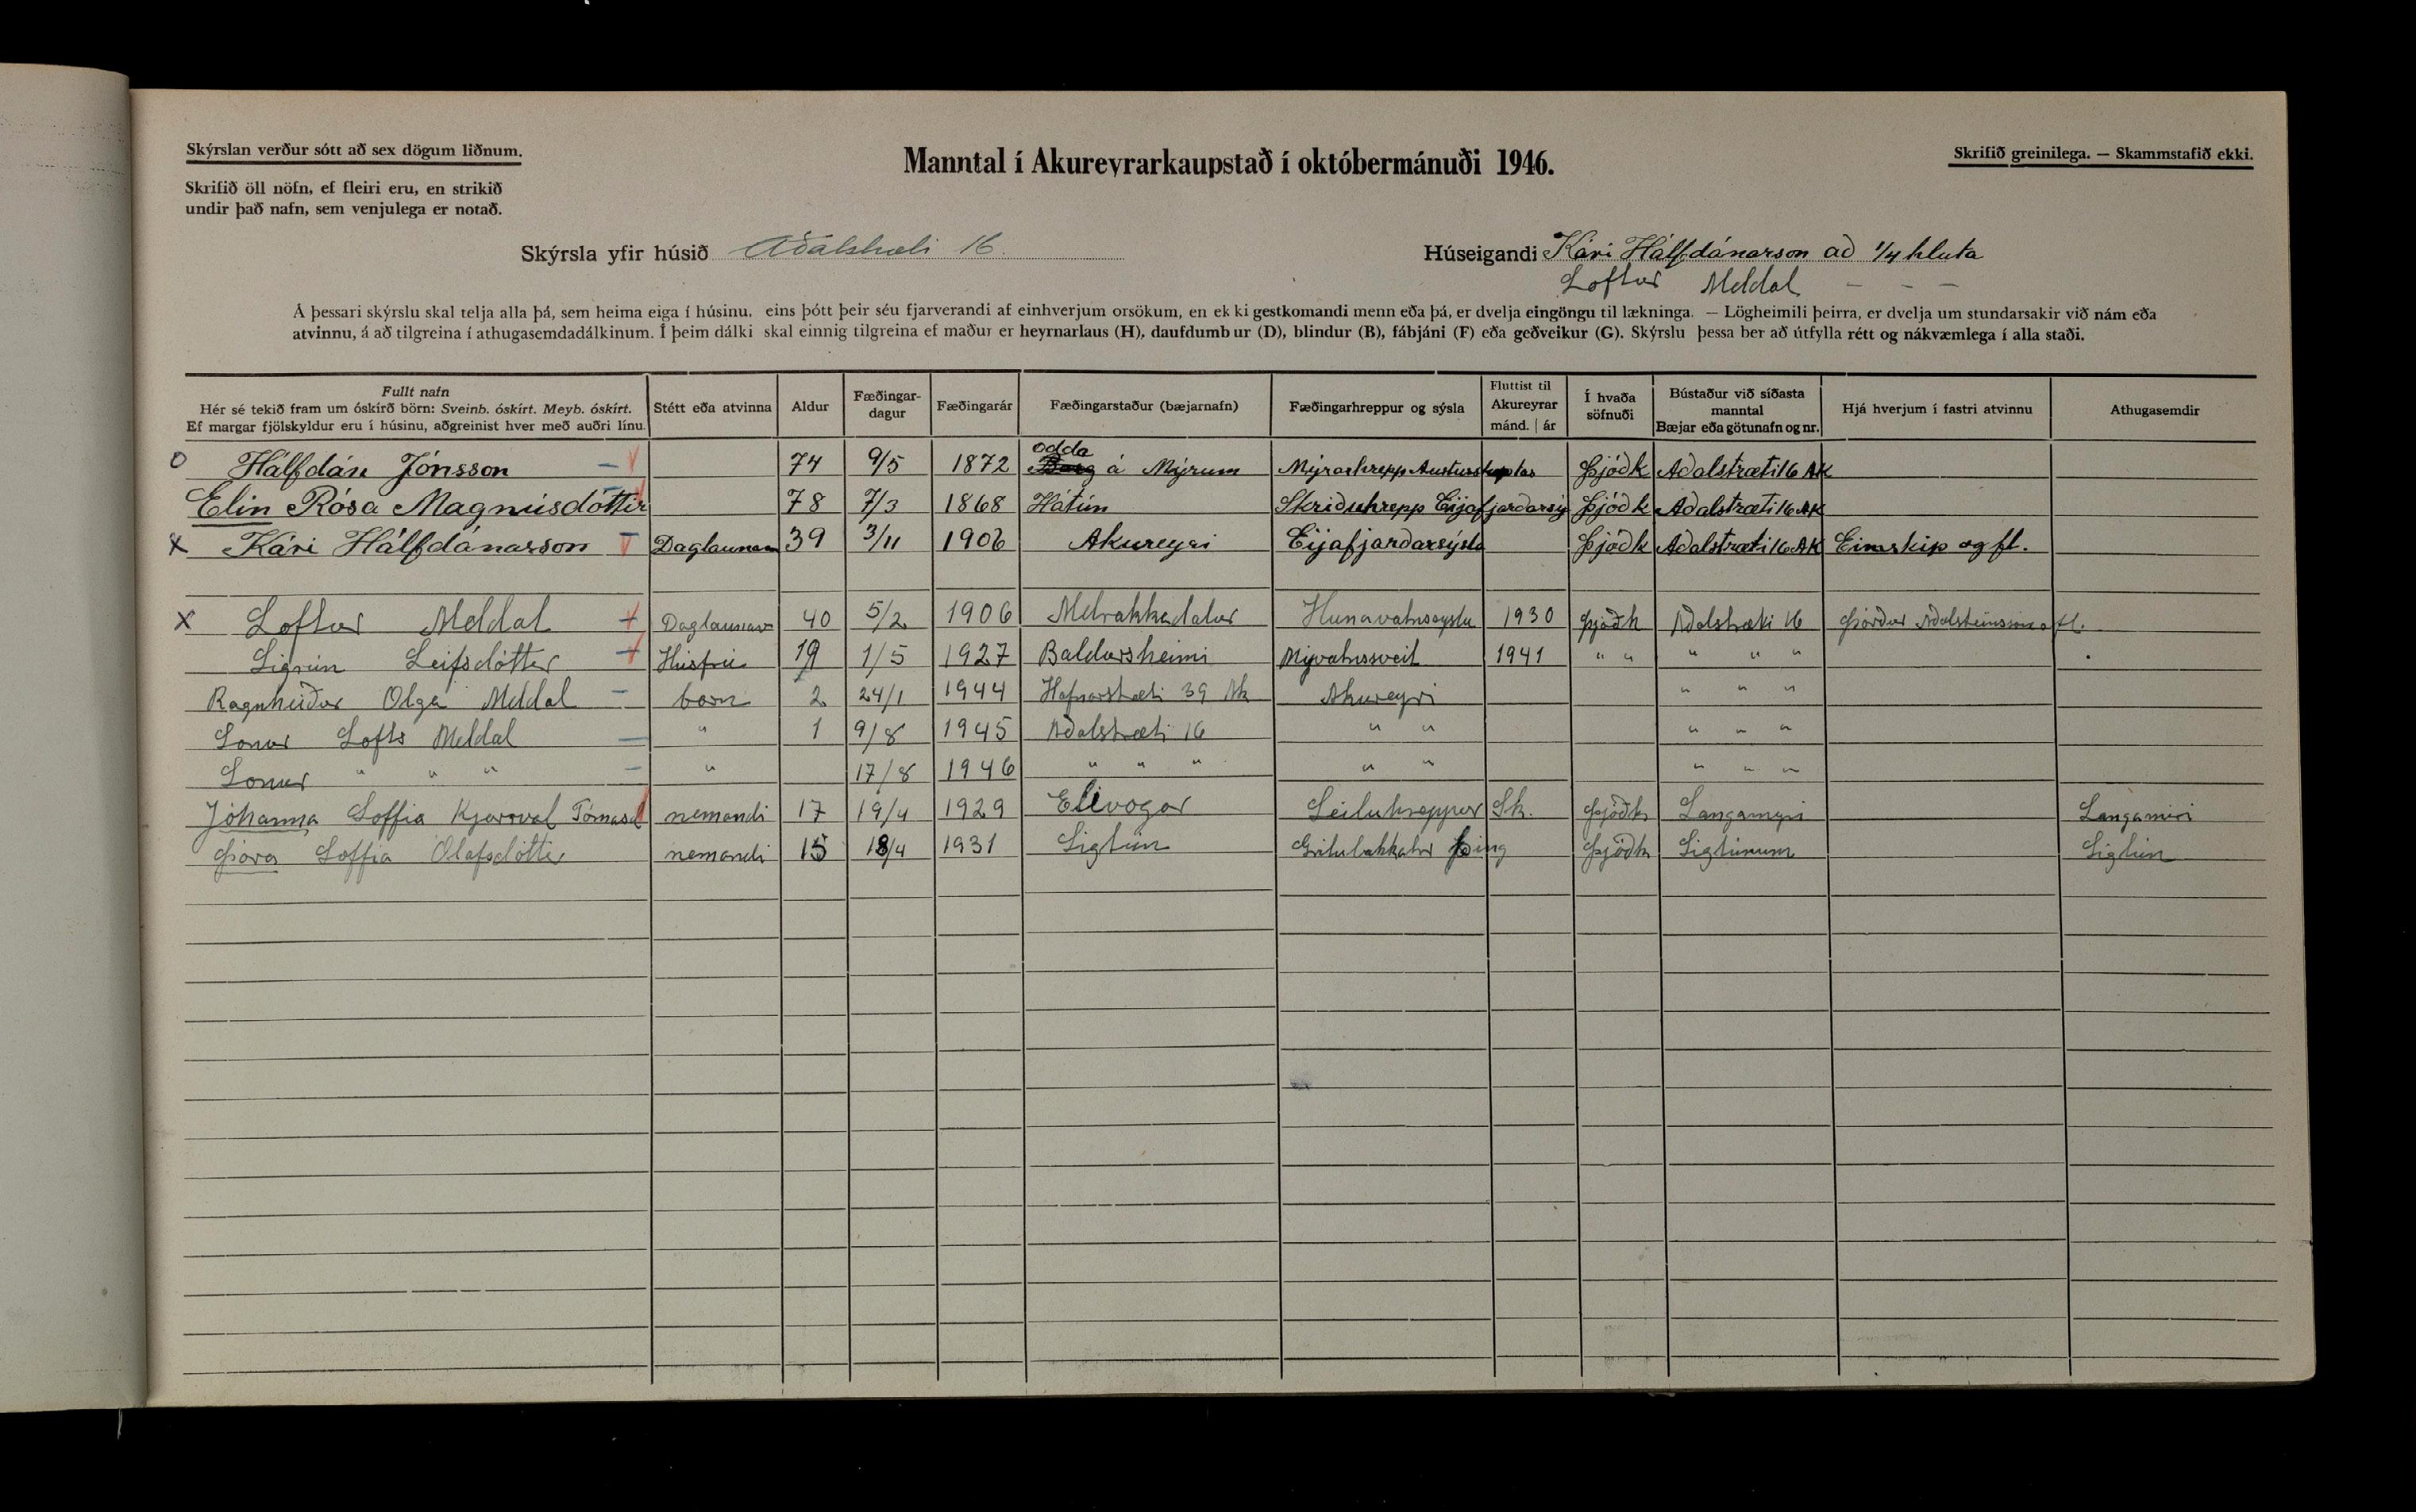 Skýrslan verður sótt að sex dögum liðnum.
Manntal í Akureyrarkaupstað í októbermánuði 1946.
Skrifið greinilega. — Skammstafið ekki.
Skrifið öll nöfn, ef fleiri eru, en strikið
undir það nafn, sem venjulega er notað.
Skýrsla yfir húsið Aðalstræti 16
Húseigandi Kári Hálfdánarson að 1/4 hluta
Loftur Meldal — — —
Á þessari skýrslu skal telja alla þá, sem heima eiga í húsinu, eins þótt þeir séu fjarverandi af einhverjum orsökum, en ek ki gestkomandi menn eða þá, er dvelja eingöngu til lækninga. — Lögheimili þeirra, er dvelja um stundarsakir við nám eða
atvinnu, á að tilgreina í athugasemdadálkinum. Í þeim dálki skal einnig tilgreina ef maður er heyrnarlaus (H), daufdumb ur (D), blindur (B), fábjáni (F) eða geðveikur (G). Skýrslu þessa ber að útfylla rétt og nákvæmlega í alla staði.
Fullt nafn
Hér sé tekið fram um óskírð börn: Sveinb. óskírt. Meyb. óskírt.
Ef margar fjölskyldur eru í húsinu, aðgreinist hver með auðri línu.
Stétt eða atvinna
Aldur
Fæðingar-
dagur
Fæðingarár
Fæðingarstaður (bæjarnafn)
Fæðingarhreppur og sýsla
Fluttist til
Akureyrar
mánd. | ár
Í hvaða
söfnuði
Bústaður við síðasta
manntal
Bæjar eða götunafn og nr.
Hjá hverjum í fastri atvinnu
Athugasemdir
o Hálfdán Jónsson 74 9/5 1872 Odda á Mýrum Mýrarhrepp Austurskaptas Þjóðk Aðalstræti 16 AK
Elin Rósa Magnúsdóttir 78 7/3 1868 Hátún Skriðuhrepp Eijafjarðarsý Þjóðk Aðalstræti 16 AK
x Kári Hálfdánarson Daglaunam 39 3/11 1906 Akureyri Eijafjarðarsýsla Þjóðk Aðalstræti 16 AK Eimskip og fl.
x Loftur Meldal Daglaunam 40 5/2 1906 Melrakkadalur Hunavatnssyslu 1930 Þjóðk Aðalstræti 16 Þórður Aðalsteinsson ofl.
Sigrún Leifsdóttir Húsfrú 19 1/5 1927 Baldursheimi Mývatnssveit 1941 " " " " "
Ragnheiður Olga Meldal born 2 24/1 1944 Hafnarstræti 39 Ak Akureyri " " "
Sonur Lofts Meldal " 1 9/8 1945 Aðalstræti 16 " " " " "
Sonur " " " " 17/8 1946 " " " " " " " "
Jóhanna Soffia Kjarval Tómasd nemandi 17 19/4 1929 Elivogar Seiluhreppur Sk. Þjóðk Langamyri Langamiri
Þóra Soffia Ólafsdóttir nemandi 15 18/4 1931 Sigtún Þing Þjóðk Sigtúnum Sigtún